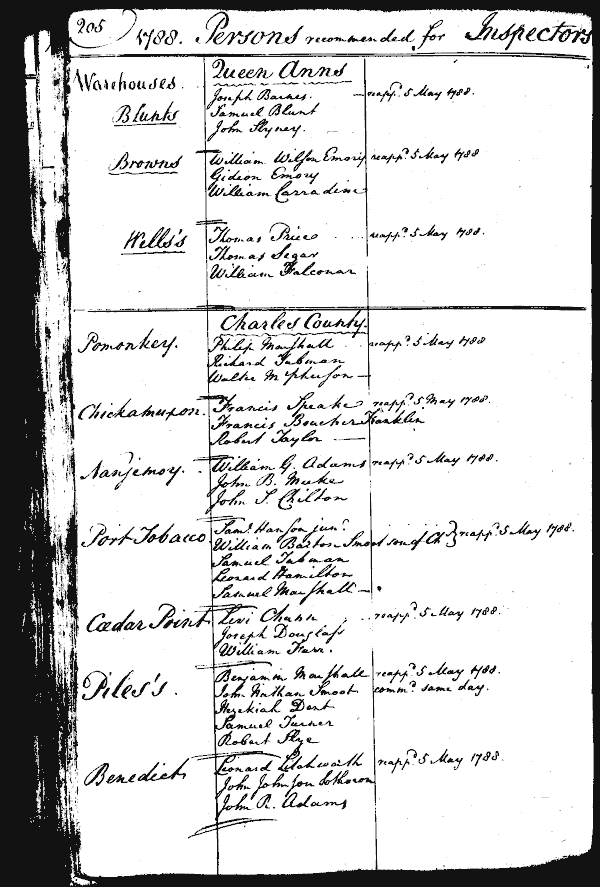 205
1788. Persons recommended for Inspectors
Warehouses. Queen Anns
Joseph Barnes. — reapp.d 5 May 1788.
Blunts Samuel Blunt
John Slyney.
Browns William Wilson Emory reapp.d 5 May 1788
Gideon Emory
William Carradine
Wells's Thomas Price reapp.d 5 May 1788.
Thomas Segar
William Falconar
Charles County.
Pomonkey. Philip Marshall reapp.d 5 May 1788
Richard Tubman
Walter McPherson —
Chickamuxon. Francis Speake reapp.d 5 May 1788.
Francis Boucher Franklin
Robert Taylor —
Nanjemoy. William G. Adams reapp.d 5 May 1788.
John B. Meeke
John S. Chilton
Port Tobacco Sam.l Hanson jun.r
William Barton Smoot son of Ch } reapp.d 5 May 1788.
Samuel Tubman
Leonard Hamilton
Samuel Marshall —
Cædar Point Levi Chunn reapp.d 5 May 1788.
Joseph Douglass
William Farr.
Piles's. Benjamin Marshall reapp.d 5 May 1788.
John Nathan Smoot comm.d same day.
Hezekiah Dent
Samuel Turner
Robert Slye
Benedict Leonard Letchworth reapp.d 5 May 1788.
John Johnson Sothoron
John R. Adams